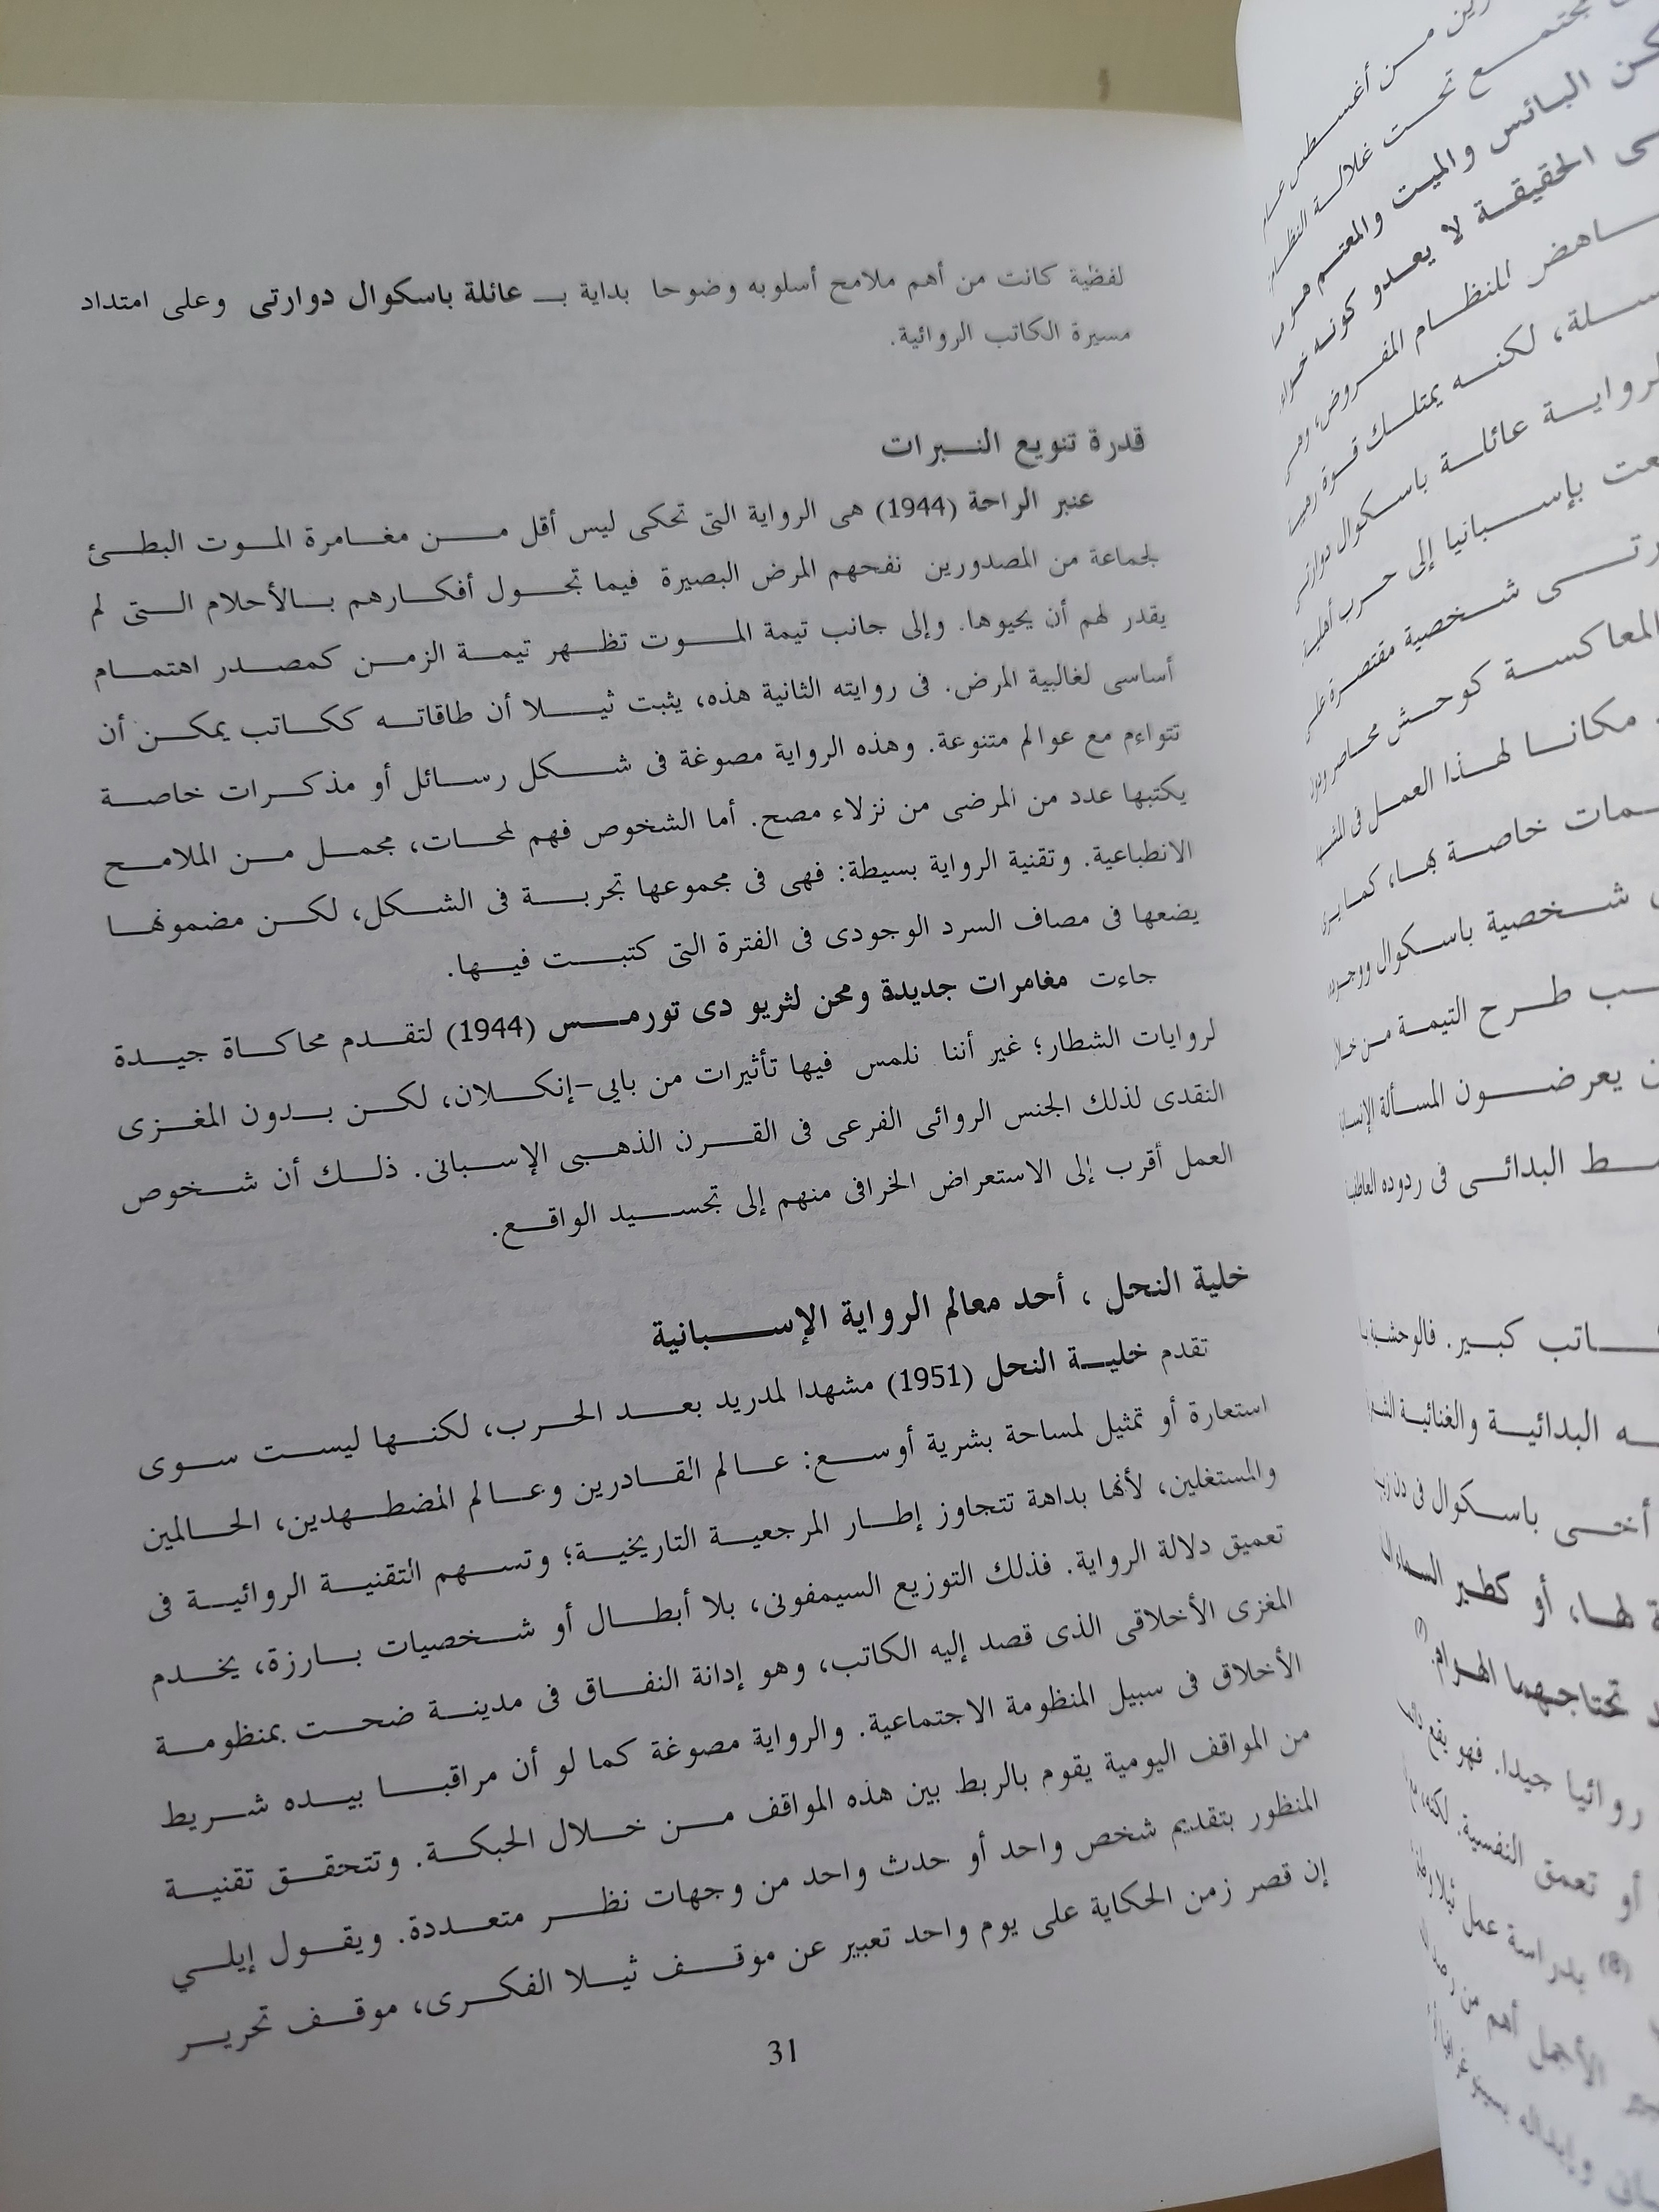 لفظية كانت من أهم ملامح أسلوبه وضوحا بداية بـ عائلة باسكوال دوارتى وعلى امتداد
مسيرة الكاتب الروائية.
قدرة تنويع النبرات
عنبر الراحة (1944) هى الرواية التى تحكى ليس أقل من مغامرة الموت البطئ
لجماعة من المصدورين نفحهم المرض البصيرة فيما تحول أفكارهم بالأحلام التى لم
يقدر لهم أن يحيوها. وإلى جانب تيمة الموت تظهر تيمة الزمن كمصدر اهتمام
أساسى لغالبية المرض. فى روايته الثانية هذه، يثبت ثيلا أن طاقاته ككاتب يمكن أن
تتواءم مع عوالم متنوعة. وهذه الرواية مصوغة فى شكل رسائل أو مذكرات خاصة
يكتبها عدد من المرضى من نزلاء مصح. أما الشخوص فهم لمحات، مجمل من الملامح
الانطباعية. وتقنية الرواية بسيطة: فهى فى مجموعها تجربة فى الشكل، لكن مضمونها
يضعها فى مصاف السرد الوجودى فى الفترة التى كتبت فيها.
جاءت مغامرات جديدة ومحن لثريو دى تورمس (1944) لتقدم محاكاة جيدة
لروايات الشطار؛ غير أننا نلمس فيها تأثيرات من بايى-إنكلان، لكن بدون المغزى
النقدى لذلك الجنس الروائى الفرعى فى القرن الذهبى الإسبانى. ذلك أن شخوص
العمل أقرب إلى الاستعراض الخرافى منهم إلى تجسيد الواقع.
خلية النحل ، أحد معالم الرواية الإسبانية
تقدم خلية النحل (1951) مشهدا لمدريد بعد الحرب، لكنها ليست سوى
استعارة أو تمثيل لمساحة بشرية أوسع: عالم القادرين وعالم المضطهدين، الحالمين
والمستغلين، لأنها بداهة تتجاوز إطار المرجعية التاريخية؛ وتسهم التقنية الروائية فى
تعميق دلالة الرواية. فذلك التوزيع السيمفونى، بلا أبطال أو شخصيات بارزة، يخدم
المغزى الأخلاقى الذى قصد إليه الكاتب، وهو إدانة النفاق فى مدينة ضحت بمنظومة
الأخلاق فى سبيل المنظومة الاجتماعية. والرواية مصوغة كما لو أن مراقبا بيده شريط
من المواقف اليومية يقوم بالربط بين هذه المواقف من خلال الحبكة. وتتحقق تقنية
المنظور بتقديم شخص واحد أو حدث واحد من وجهات نظر متعددة. ويقول إيلي
إن قصر زمن الحكاية على يوم واحد تعبير عن موقف ثيلا الفكرى، موقف تحرير
31
من أغسطس عام
مجتمع تحت غلالة النظام
البائس والميت والمعتم
الحقيقة لا يعدو كونه خواء
للنظام المفروض،
لكنه يمتلك قوة
الرواية عائلة باسكوال دوارتى
بإسبانيا إلى حرب أهلية
شخصية مقتصرة على
المعاكسة كوحش محاصر
مكانا لهذا العمل فى
خاصة بها، كما يرى
شخصية باسكوال
طرح التيمة من خلال
يعرضون المسألة
البدائى فى ردوده
كاتب كبير.
البدائية والغنائية
أختى باسكوال فى
لها، أو كطير السماء
تحتاجهما الهوام.
روائيا جيدا. فهو يقع
أو تعمق النفسية.
(8) بدراسة عمل ثيلا